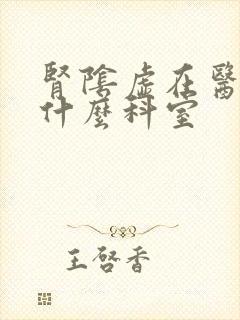 腎陰虛在醫
什麼科室
王啓香